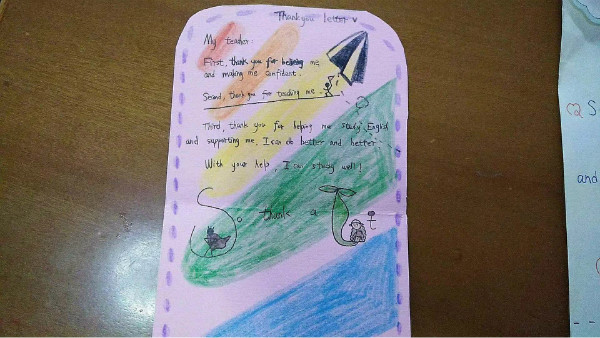 Thank you letter
My teacher:
First, thank you for helping me
and making me confidant.
Second, thank you for teaching me.
Third, thank you for helping me study English
and supporting me, I can do better and better.
With your help, I can study well!
So thank a lot
Q S
and